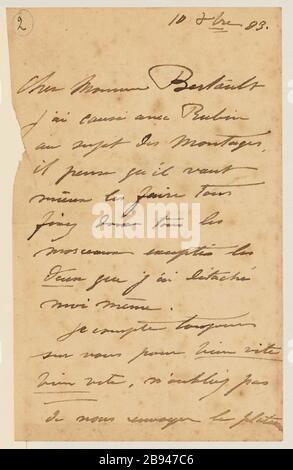 2
10 xbre 83.
Cher Monsieur Bertault
J'ai causé avec Rubin
au sujet des montages,
il pense qu'il vaut
mieux les faire tous
donc tous les
morceaux exceptés les
deux que j'ai détaché
moi même.
Je compte toujours
sur vous pour bien vite
bien vite, n'oubliez pas
de nous renvoyer le
alamy
Image ID: 2B947C6
www.alamy.com